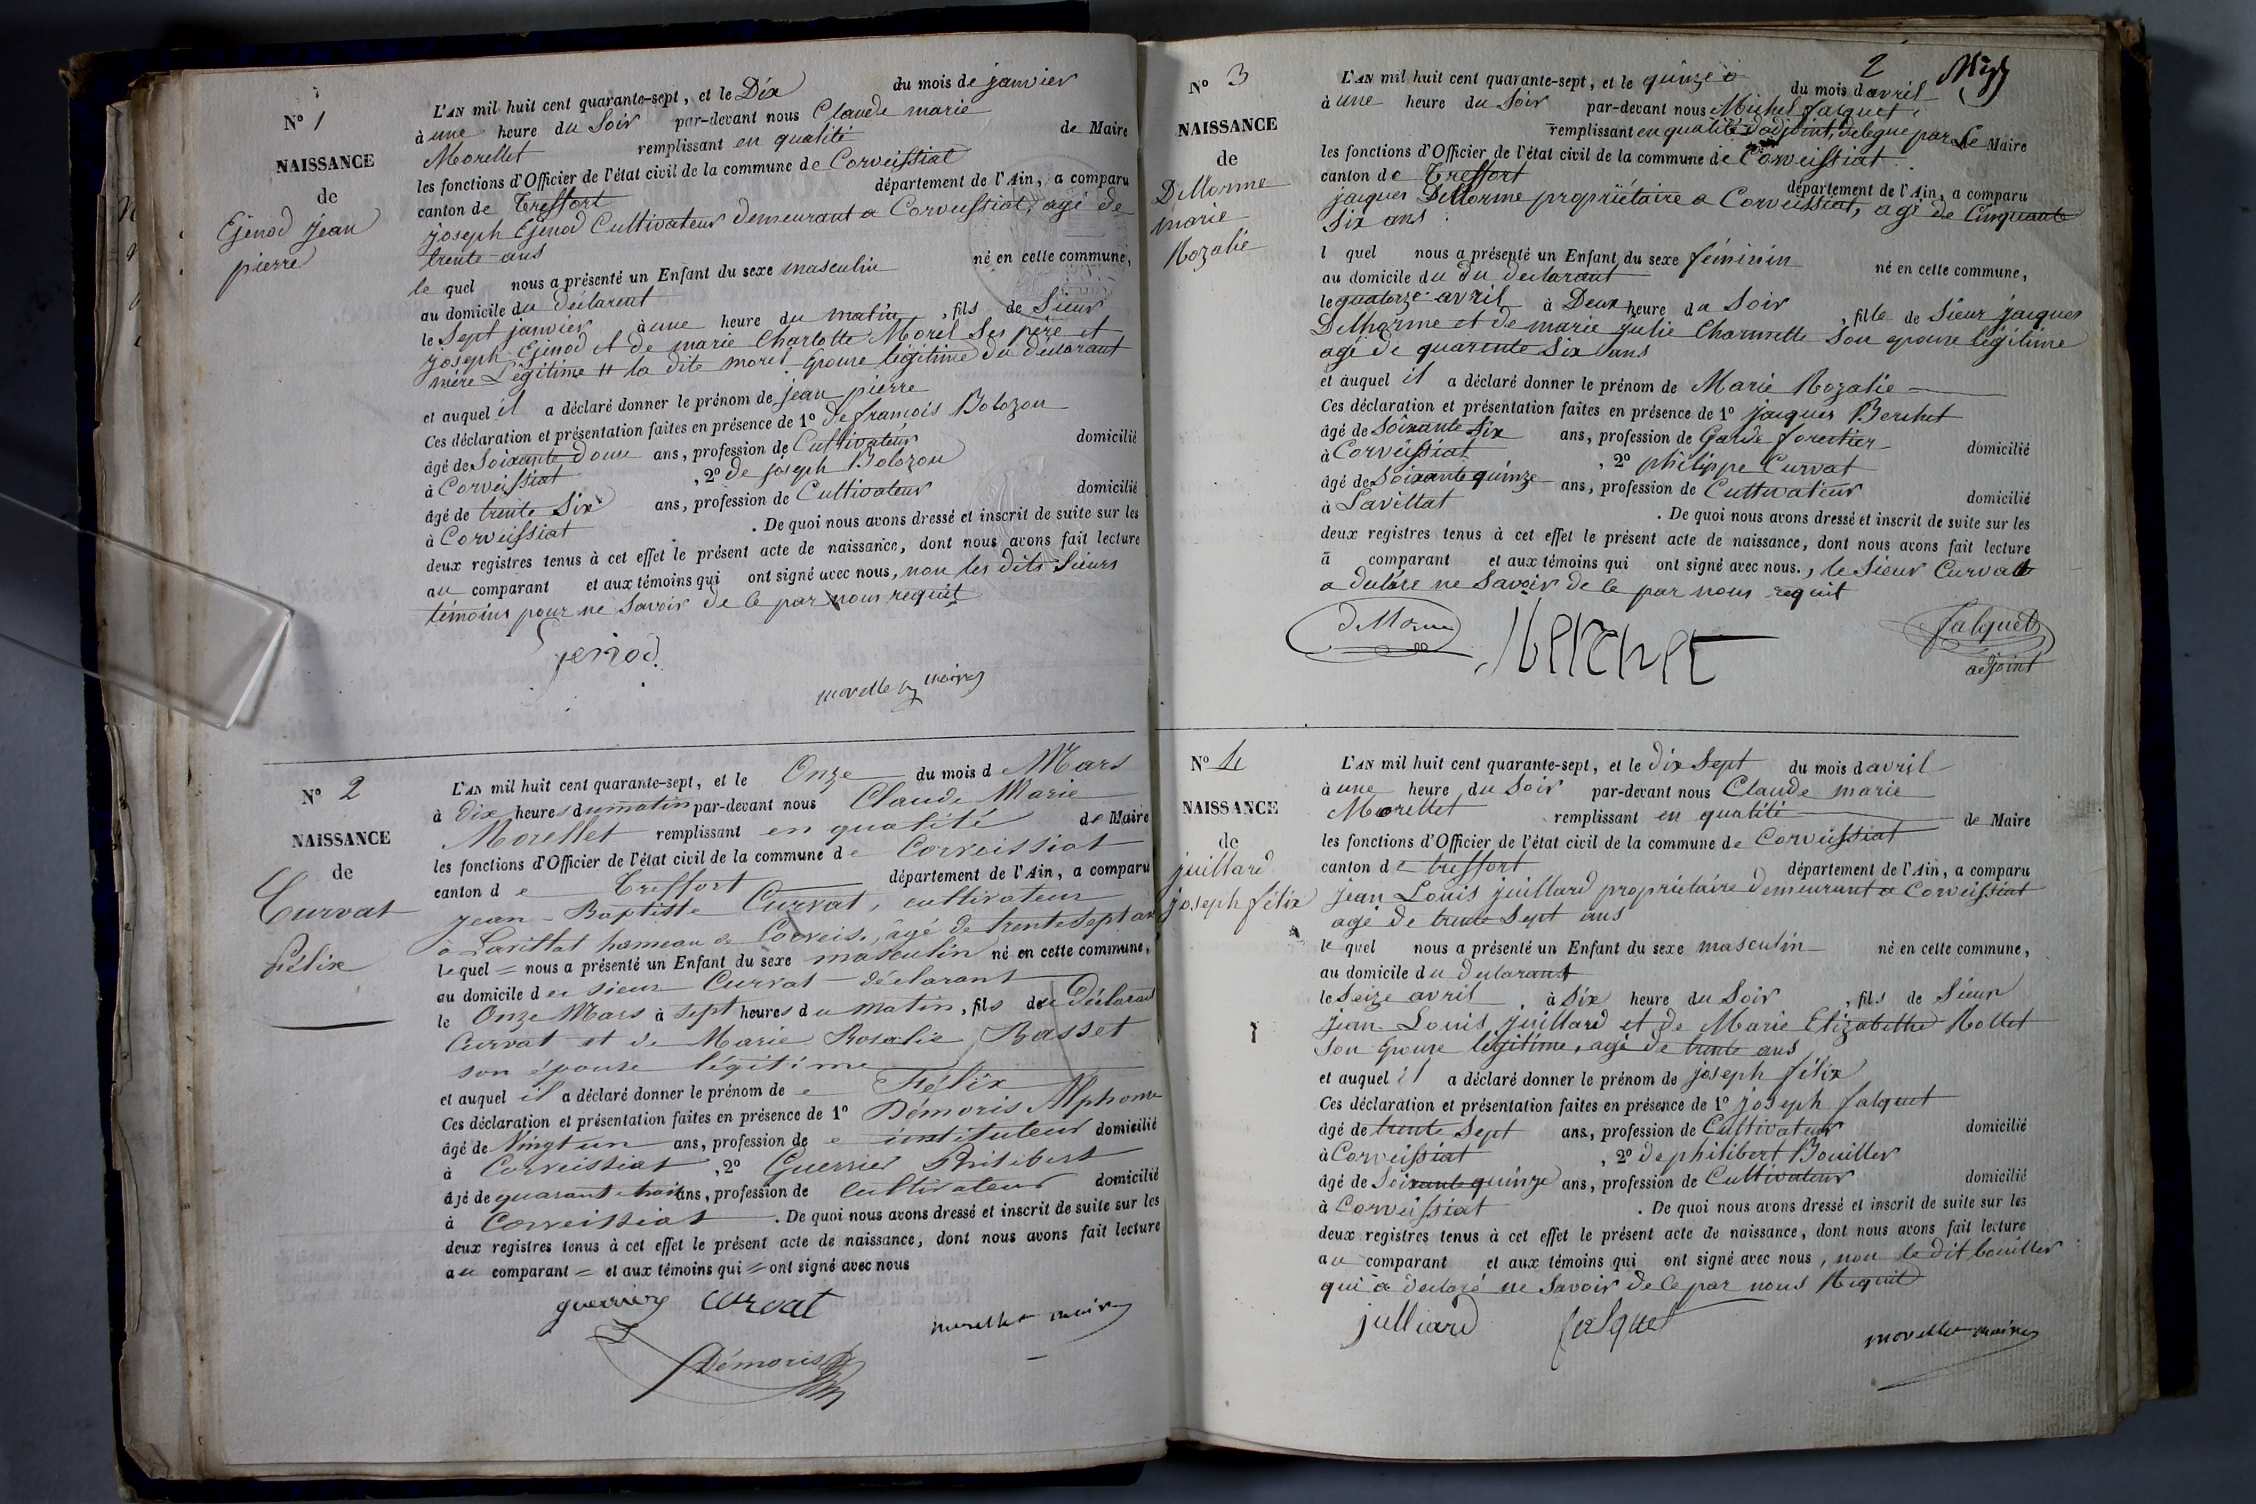 N° 1
NAISSANCE
de
Ejenod jean
pierre
L'AN mil huit cent quarante-sept, et le Dix du mois de janvier
à une heure du Soir par-devant nous Claude marie
Morellet remplissant en qualité de Maire
les fonctions d'Officier de l'état civil de la commune de Corveissiat
canton de Treffort département de l'Ain, a comparu
joseph Ejenod Cultivateur demeurant a Corveissiat, agé de
trente ans
le quel nous a présenté un Enfant du sexe masculin né en cette commune,
au domicile du déclarent
le Sept janvier à une heure du matin, fils de Sieur
joseph Ejenod et de marie Charlotte Morel Ses père et
mère Légitime la dite morel Epouse légitime du déclarant
et auquel il a déclaré donner le prénom de jean pierre
Ces déclaration et présentation faites en présence de 1° de francois Bolozon
âgé de Soixante Douze ans, profession de Cultivateur domicilié
à Corveissiat, 2° de joseph Bolozon
âgé de trente Six ans, profession de Cultivateur domicilié
à Corveissiat. De quoi nous avons dressé et inscrit de suite sur les
deux registres tenus à cet effet le présent acte de naissance, dont nous avons fait lecture
au comparant et aux témoins qui ont signé avec nous, non les dits Sieurs
témoins pour ne Savoir de le par nous requit
morellet maire
N° 2
NAISSANCE
de
Curvat
félix
L'AN mil huit cent quarante-sept, et le Onze du mois d Mars
à dix heures du matin par-devant nous Claude Marie
Morellet remplissant en qualité de Maire
les fonctions d'Officier de l'état civil de la commune de Corveissiat
canton d e Treffort département de l'Ain, a comparu
jean-Baptiste Curvat, cultivateur
à Lavillat hameau de Corveis., âgé de trente sept ans
lequel nous a présenté un Enfant du sexe masculin né en cette commune,
au domicile du sieur Curvat déclarant
le Onze Mars à sept heures du matin, fils du déclarant
Curvat et de Marie Rosalie Basset
son épouse légitime
et auquel il a déclaré donner le prénom de Félix
Ces déclaration et présentation faites en présence de 1° Démoris Alphonse
âgé de Vingt un ans, profession de instituteur domicilié
à Corveissiat, 2° Guerrier Philibert
âgé de quarante trois ans, profession de cultivateur domicilié
à Corveissiat. De quoi nous avons dressé et inscrit de suite sur les
deux registres tenus à cet effet le présent acte de naissance, dont nous avons fait lecture
au comparant et aux témoins qui ont signé avec nous
guerrier curvat
morellet maire
Démoris
2
N° 3
NAISSANCE
de
Dellorme
marie
Rozalie
L'AN mil huit cent quarante-sept, et le quinze du mois d avril
à une heure du Soir par-devant nous Michel falquet
remplissant en qualité d'adjoint, delegue par Le Maire
les fonctions d'Officier de l'état civil de la commune de Corveissiat
canton de Treffort département de l'Ain, a comparu
jaques Dellorme propriétaire a Corveissiat, agé de Cinquante
Six ans
l quel nous a présenté un Enfant du sexe féminin né en cette commune,
au domicile du du declarant
le quatorze avril à Deux heure du Soir, fille de Sieur jaques
Delhorme et de marie julie Charmette Son epouse légitime
agé de quarente Six ans
et auquel il a déclaré donner le prénom de Marie Rozalie
Ces déclaration et présentation faites en présence de 1° jaques Berchet
âgé de Soixante Six ans, profession de Garde forestier domicilié
à Corveissiat, 2° philippe Curvat
âgé de Soixante quinze ans, profession de Cultivateur domicilié
à Lavillat. De quoi nous avons dressé et inscrit de suite sur les
deux registres tenus à cet effet le présent acte de naissance, dont nous avons fait lecture
a comparant et aux témoins qui ont signé avec nous., le Sieur Curvat
a déclare ne Savoir de le par nous requit
Berchet
falquet
adjoint
N° 4
NAISSANCE
de
juillard
joseph félix
L'AN mil huit cent quarante-sept, et le dix Sept du mois d avril
à une heure du Soir par-devant nous Claude marie
Morellet remplissant en qualité de Maire
les fonctions d'Officier de l'état civil de la commune de Corveissiat
canton de treffort département de l'Ain, a comparu
jean Louis juillard propriétaire demeurant a Corveissiat
agé de trente Sept ans
le quel nous a présenté un Enfant du sexe masculin né en cette commune,
au domicile du declarant
le Seize avril, à Six heure du Soir, fils de Sieur
jean Louis juillard et de Marie Elizabethe Rollet
Son Epouse légitime, agé de trente ans
et auquel il a déclaré donner le prénom de joseph félix
Ces déclaration et présentation faites en présence de 1° joseph falquet
âgé de trente Sept ans, profession de Cultivateur domicilié
à Corveissiat, 2° de philibert Bouiller
âgé de Soixante quinze ans, profession de Cultivateur domicilié
à Corveissiat. De quoi nous avons dressé et inscrit de suite sur les
deux registres tenus à cet effet le présent acte de naissance, dont nous avons fait lecture
au comparant et aux témoins qui ont signé avec nous, non le dit bouiller
qui a declaré ne Savoir de le par nous Requit
julliard falquet
morellet maire